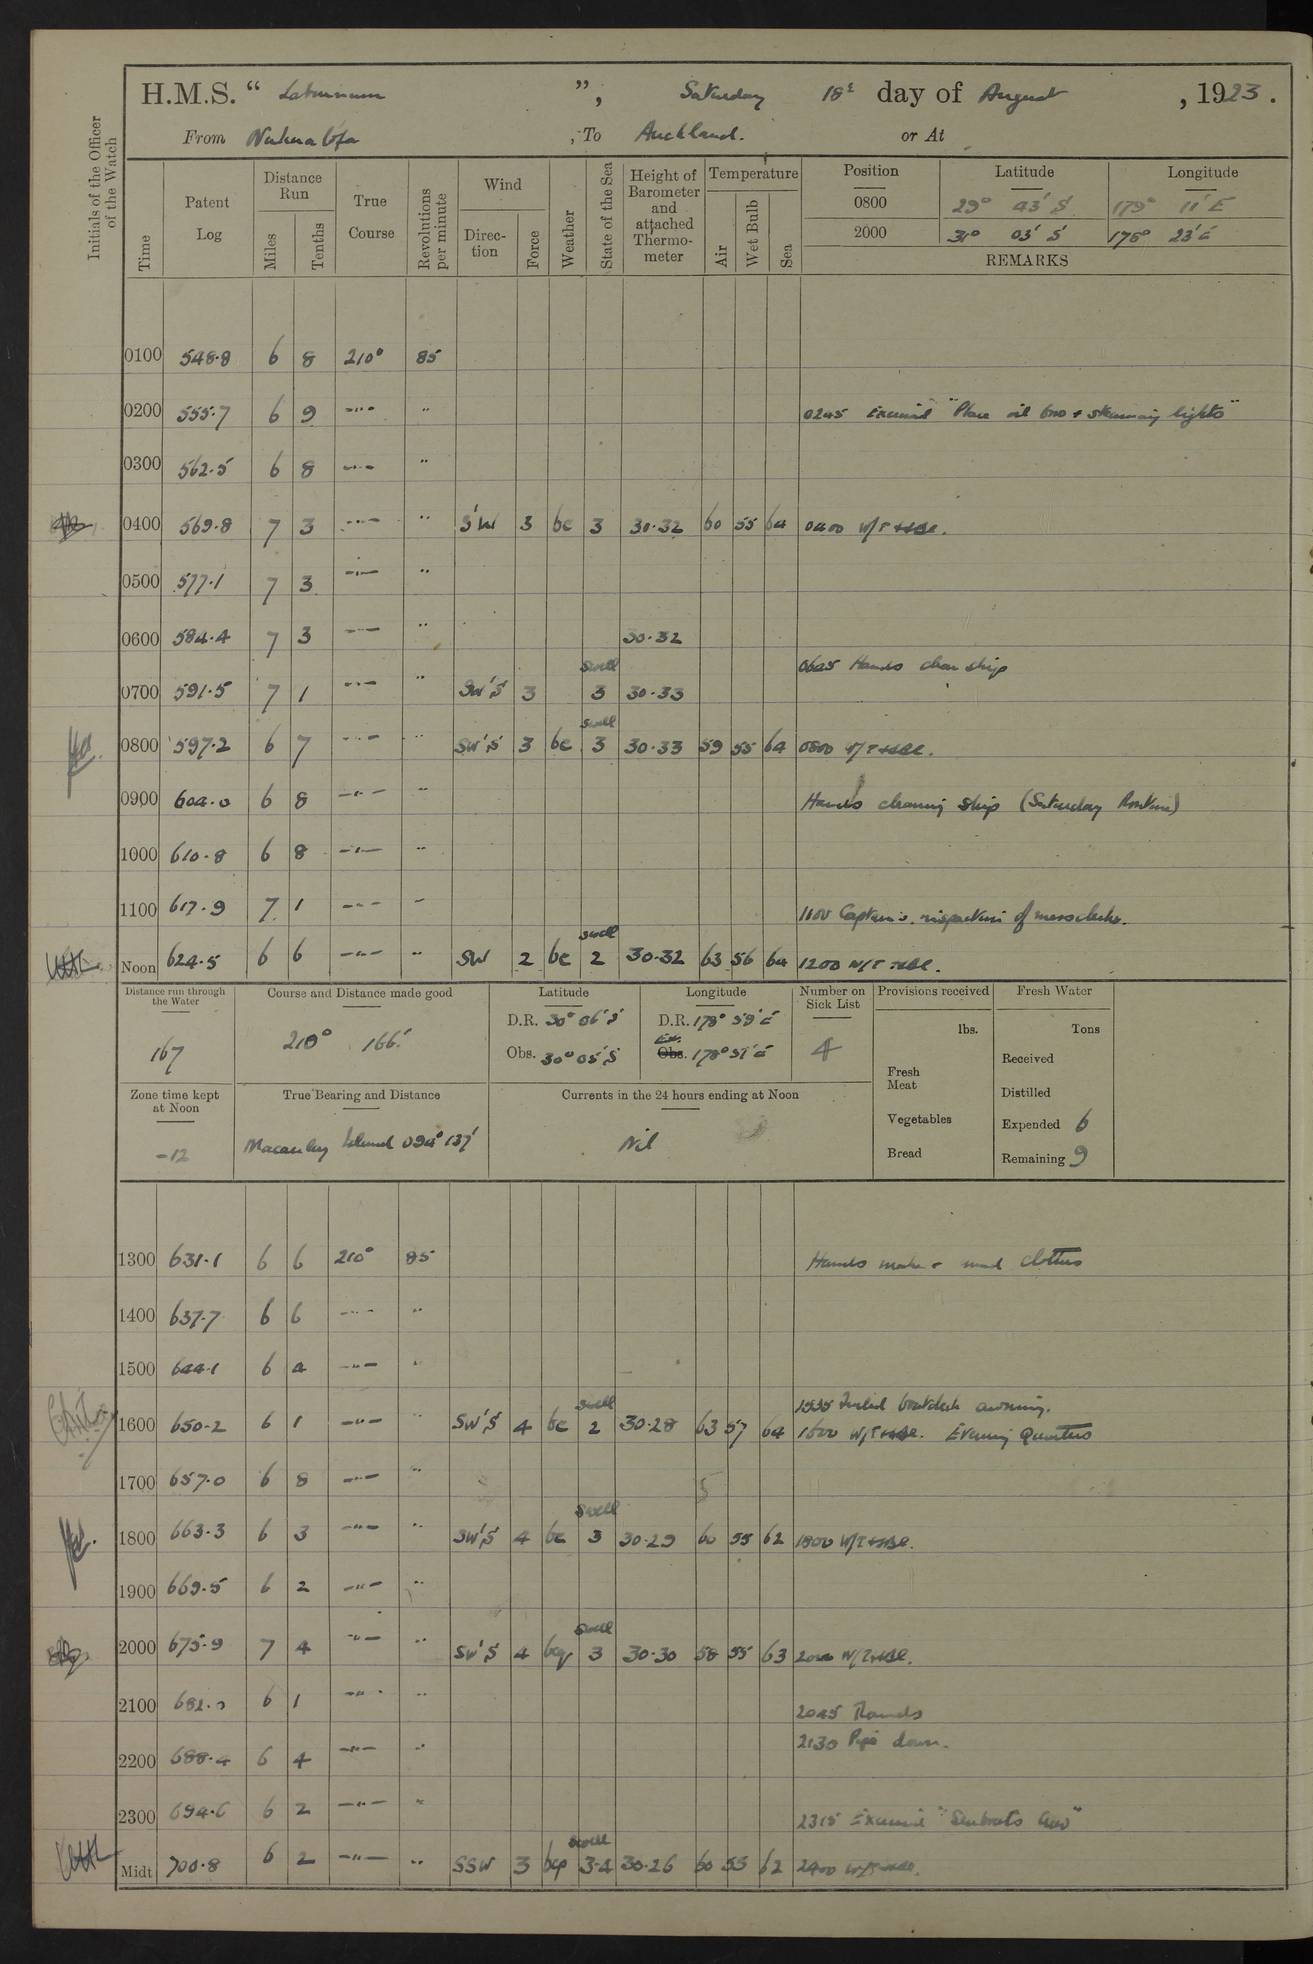 H.M.S. " Laburnum ", Saturday 18th day of August, 1923.
From Nukualofa, To Auckland. or At
Initials of the Officer of the Watch
Time
Patent Log
Distance Run
Miles
Tenths
True Course
Revolutions per minute
Wind
Direction
Force
Weather
State of the Sea
Height of Barometer and attached Thermometer
Temperature
Air
Wet Bulb
Sea
Position Latitude Longitude
0800 29° 43' S 179° 11' E
2000 31° 03' S 178° 23' E
REMARKS
0100 548.8 6 8 210° 85
0200 555.7 6 9 —"— " 0245 Exercised "Place oil bno + steaming lights"
0300 562.5 6 8 —"— "
0400 569.8 7 3 —"— " S'W 3 bc 3 30.32 60 55 64 0400 W/T
0500 577.1 7 3 —"— "
0600 584.4 7 3 —"— " 30.32
0645 Hands clean ship
0700 591.5 7 1 —"— " SW'S 3 swell 3 30.33
0800 597.2 6 7 —"— " SW'S 3 bc swell 3 30.33 59 55 64 0800 W/T
0900 604.0 6 8 —"— " Hands cleaning ship (Saturday Routine)
1000 610.8 6 8 —"— "
1100 617.9 7 1 —"— " 1100 Captain's inspection of messdecks.
Noon 624.5 6 6 —"— " SW 2 bc swell 2 30.32 63 56 64 1200 W/T
Distance run through the Water
167
Course and Distance made good
210° 166'
Latitude
D.R. 30° 06' S
Obs. 30° 05' S
Longitude
D.R. 178° 59' E
Obs. 178° 57' E
Number on Sick List
4
Provisions received
lbs.
Fresh Meat
Vegetables
Bread
Fresh Water
Tons
Received
Distilled
Expended 6
Remaining 9
Zone time kept at Noon
-12
True Bearing and Distance
Macauley Island 094° 137'
Currents in the 24 hours ending at Noon
Nil
1300 631.1 6 6 210° 85 Hands make + mend clothes
1400 637.7 6 6 —"— "
1500 644.1 6 4 —"— "
1535 Furled awning.
1600 650.2 6 1 —"— " SW'S 4 bc swell 2 30.28 63 57 64 1600 W/T Evening Quarters
1700 657.0 6 8 —"— "
1800 663.3 6 3 —"— " SW'S 4 bc swell 3 30.29 60 55 62 1800 W/T
1900 669.5 6 2 —"— "
2000 675.9 7 4 —"— " SW'S 4 bcq swell 3 30.30 58 55 63 2000 W/T
2100 682.0 6 1 —"— " 2045 Rounds
2130 Pipe down.
2200 688.4 6 4 —"— "
2300 694.6 6 2 —"— " 2315 Exercised "Seaboats crew"
Midt 700.8 6 2 —"— " SSW 3 bcp swell 3-4 30.26 60 53 62 2400 W/T